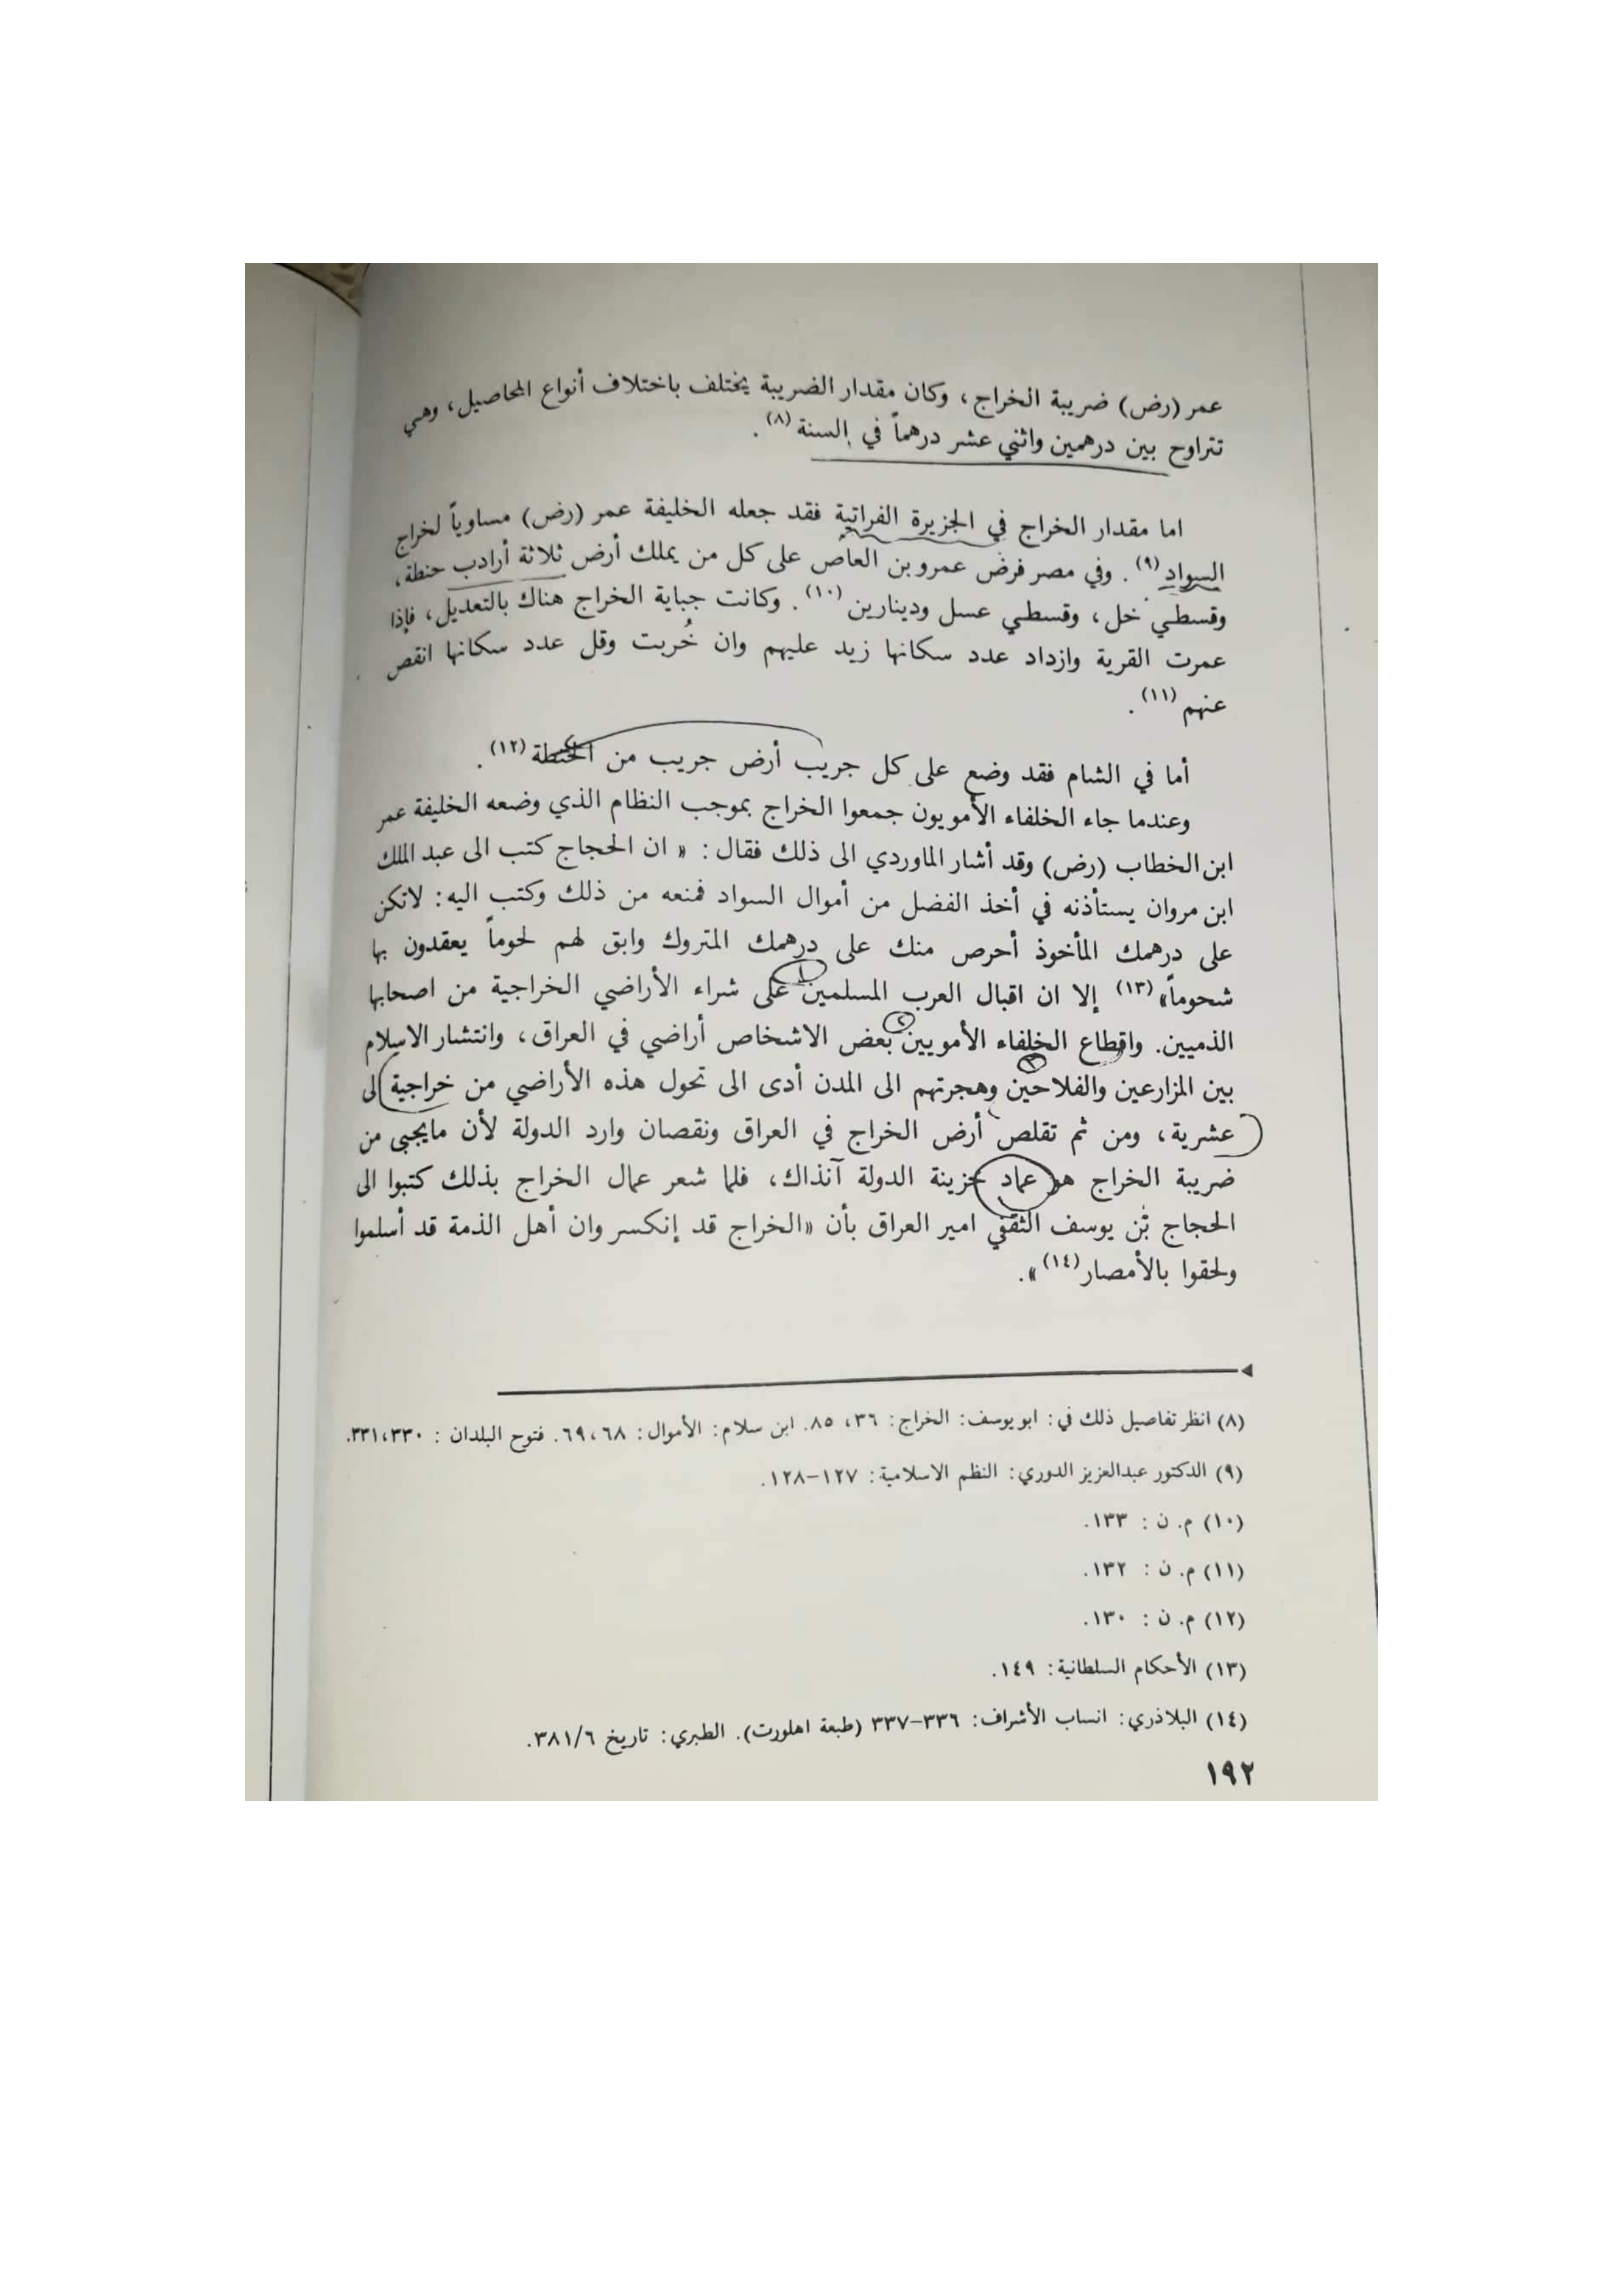 عمر (رض) ضريبة الخراج، وكان مقدار الضريبة يختلف باختلاف أنواع المحاصيل، وهي
تتراوح بين درهمين واثني عشر درهماً في السنة (٨).
اما مقدار الخراج في الجزيرة الفراتية فقد جعله الخليفة عمر (رض) مساوياً لخراج
السواد (٩). وفي مصر فرض عمرو بن العاص على كل من يملك أرض ثلاثة أرادب حنطة،
وقسطي خل، وقسطي عسل ودينارين (١٠). وكانت جباية الخراج هناك بالتعديل، فإذا
عمرت القرية وازداد عدد سكانها زيد عليهم وان خُربت وقل عدد سكانها انقص
عنهم (١١).
أما في الشام فقد وضع على كل جريب أرض جريب من الحنطة (١٢).
وعندما جاء الخلفاء الأمويون جمعوا الخراج بموجب النظام الذي وضعه الخليفة عمر
ابن الخطاب (رض) وقد أشار الماوردي الى ذلك فقال: « ان الحجاج كتب الى عبد الملك
ابن مروان يستأذنه في أخذ الفضل من أموال السواد فمنعه من ذلك وكتب اليه: لاتكن
على درهمك المأخوذ أحرص منك على درهمك المتروك وابق لهم لحوماً يعقدون بها
شحوماً» (١٣) إلا ان اقبال العرب المسلمين على شراء الأراضي الخراجية من اصحابها
الذميين. واقطاع الخلفاء الأمويين بعض الاشخاص أراضي في العراق، وانتشار الاسلام
بين المزارعين والفلاحين وهجرتهم الى المدن أدى الى تحول هذه الأراضي من خراجية الى
عشرية، ومن ثم تقلص أرض الخراج في العراق ونقصان وارد الدولة لأن مايجبى من
ضريبة الخراج هو عماد خزينة الدولة آنذاك، فلما شعر عمال الخراج بذلك كتبوا الى
الحجاج بن يوسف الثقفي امير العراق بأن «الخراج قد إنكسر وان أهل الذمة قد أسلموا
ولحقوا بالأمصار (١٤)».
(٨) انظر تفاصيل ذلك في: ابو يوسف: الخراج: ٣٦، ٨٥. ابن سلام: الأموال: ٦٨، ٦٩. فتوح البلدان: ٣٣٠، ٣٣١.
(٩) الدكتور عبدالعزيز الدوري: النظم الاسلامية: ١٢٧-١٢٨.
(١٠) م. ن : ١٣٣.
(١١) م. ن : ١٣٢.
(١٢) م. ن : ١٣٠.
(١٣) الأحكام السلطانية: ١٤٩.
(١٤) البلاذري: انساب الأشراف: ٣٣٦-٣٣٧ (طبعة اهلورت). الطبري: تاريخ ٣٨١/٦.
١٩٢